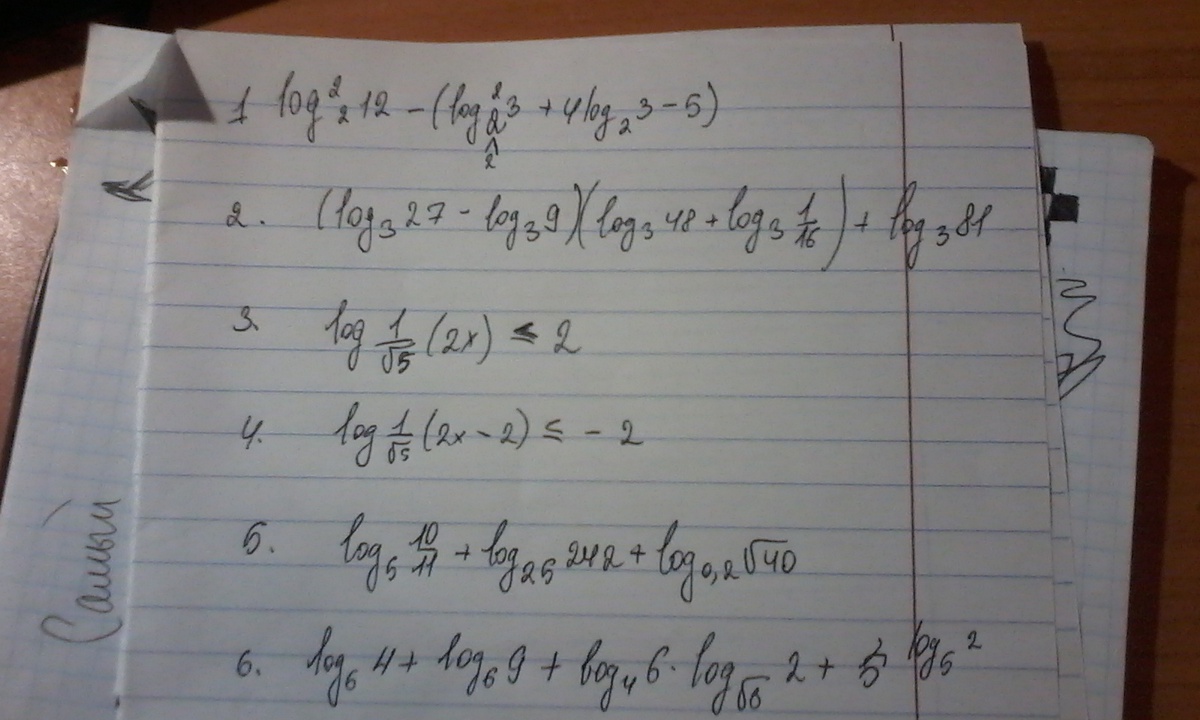 1 log²₂12 − (log²₂3 + 4log₂3 − 5)
2
2. (log₃27 − log₃9)(log₃48 + log₃ 1/16) + log₃81
3. log 1/√5 (2x) ≤ 2
4. log 1/√5 (2x − 2) ≤ − 2
5. log₅ 10/11 + log₂₅242 + log₀,₂√40
6. log₆4 + log₆9 + log₄6 · log√6 2 + 5^log₅2
Самый